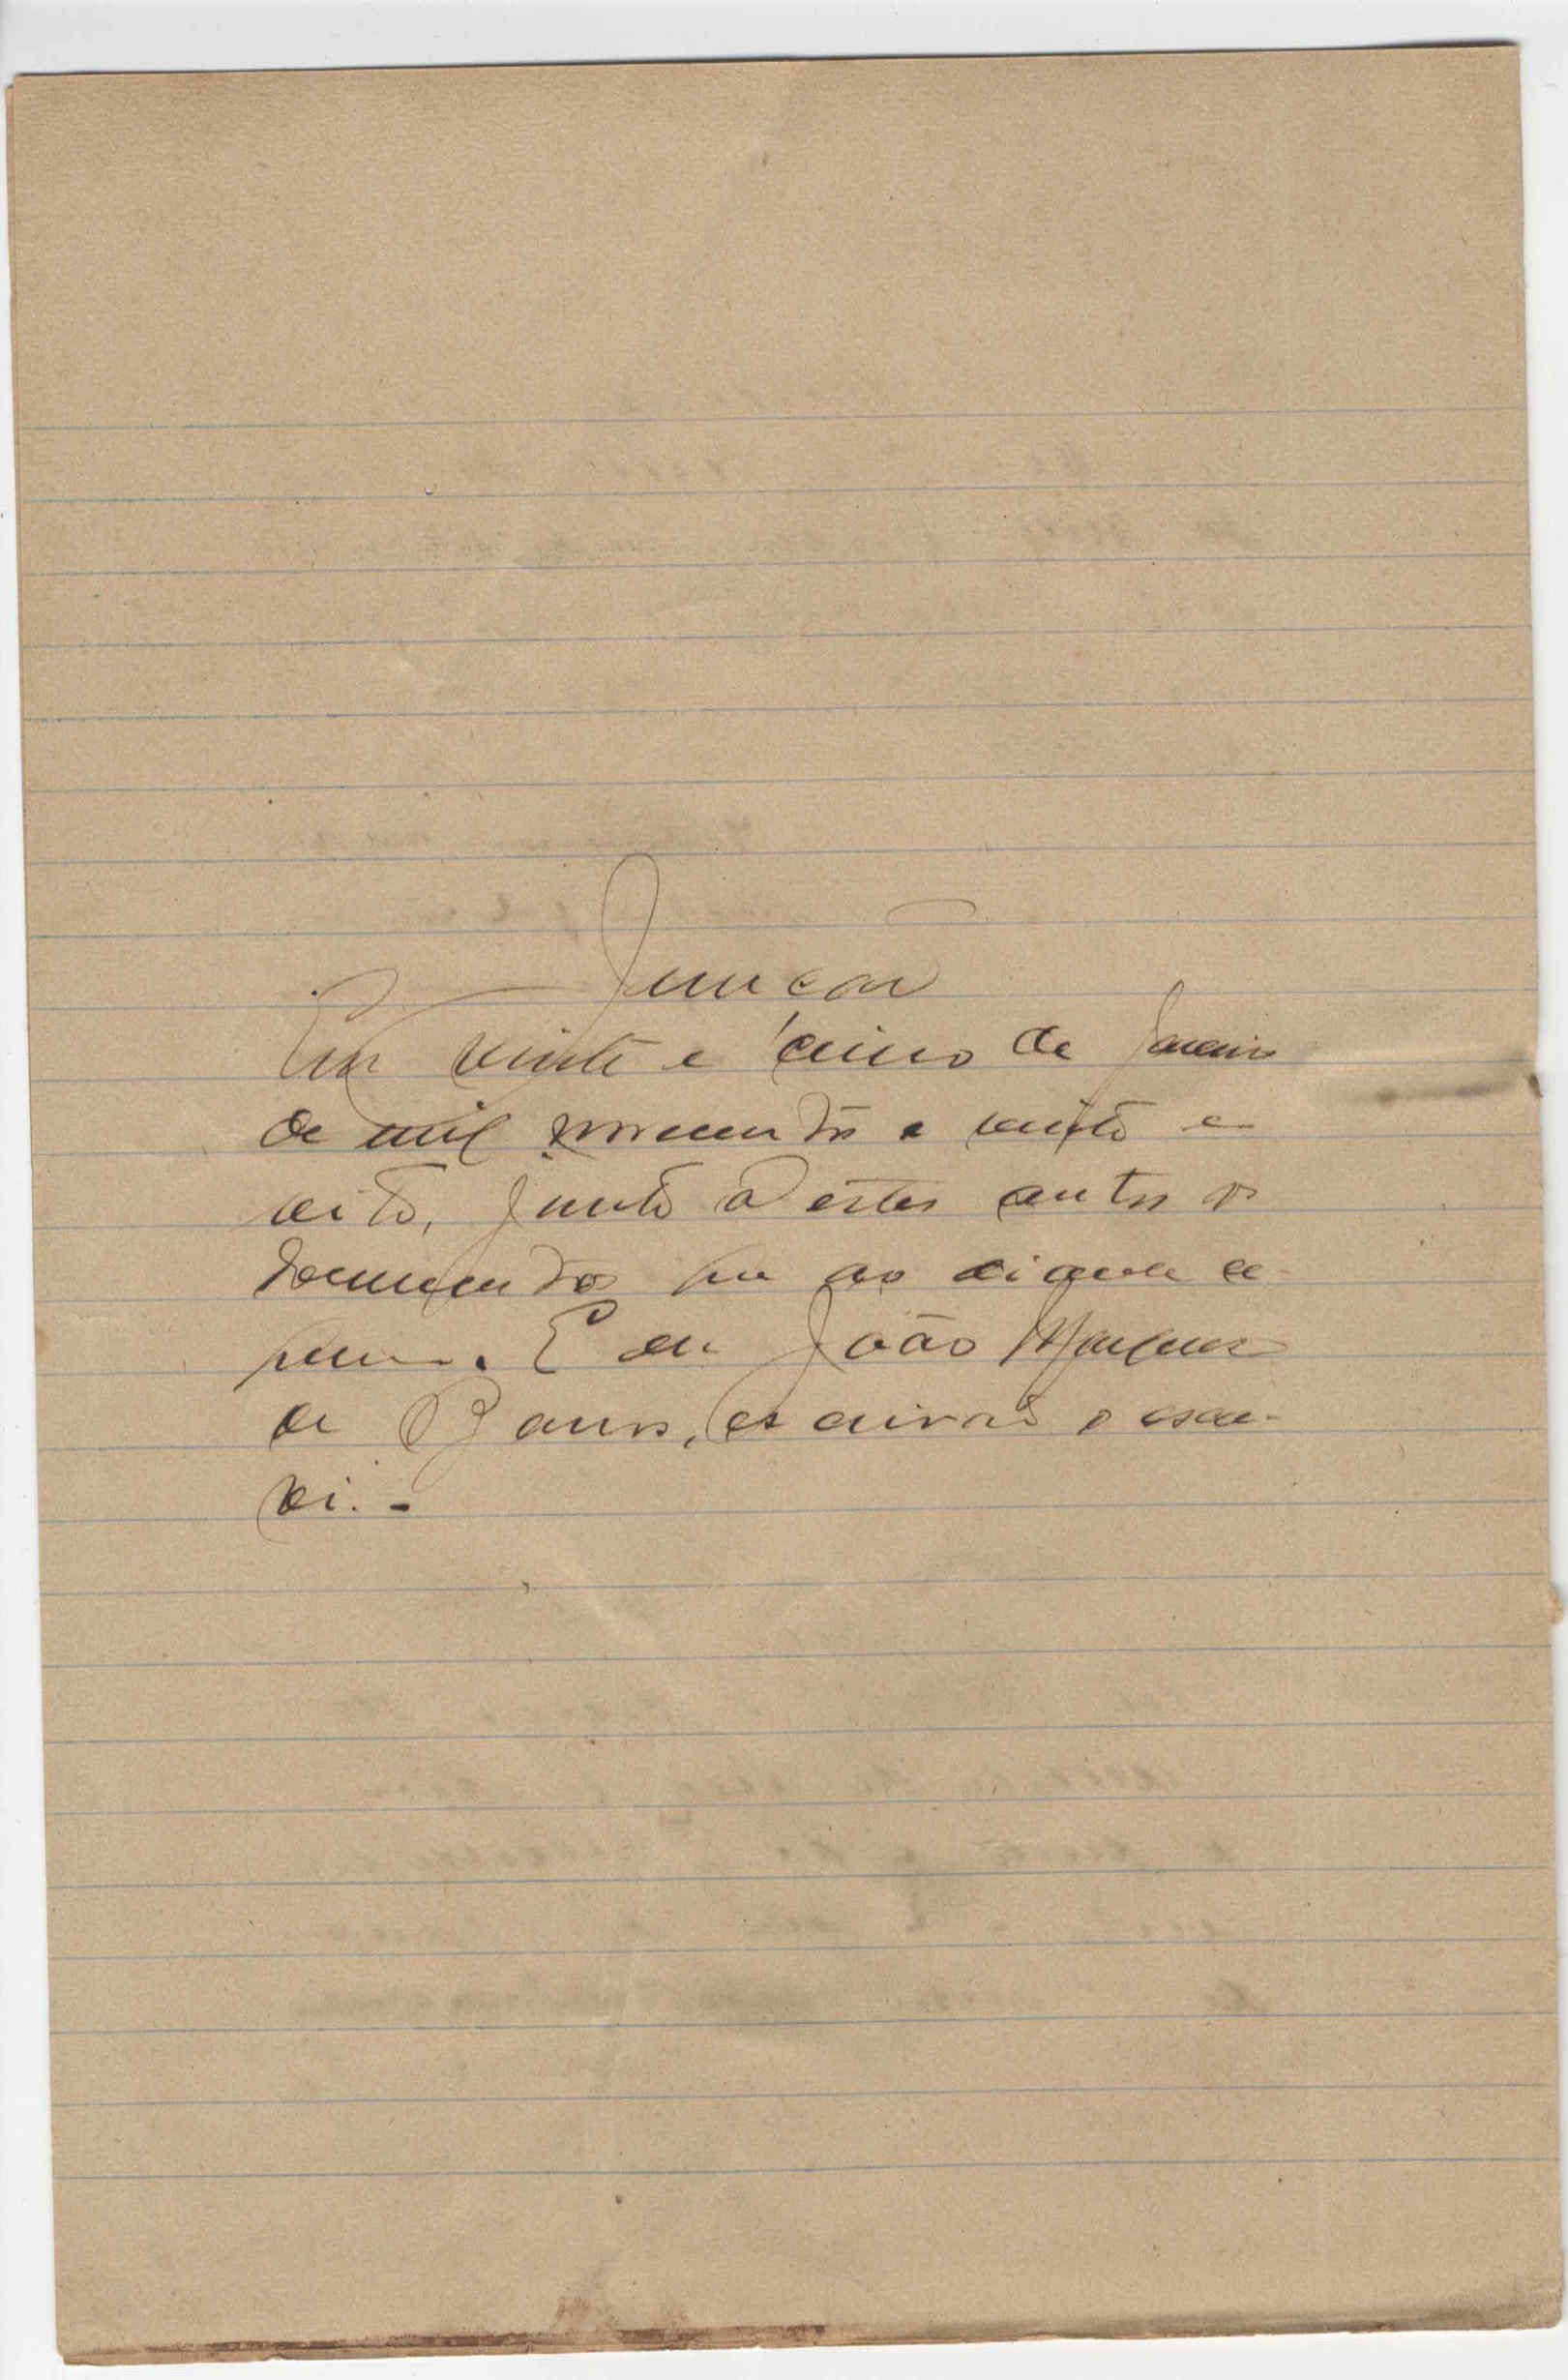 Juncão
Em vinte e cinco de Janeiro
de mil novecentos e vinte e
oito, junto a estes autos os
documentos que ao diante se
. E eu João Marques
de Barros, escrivão o escre-
vi. -